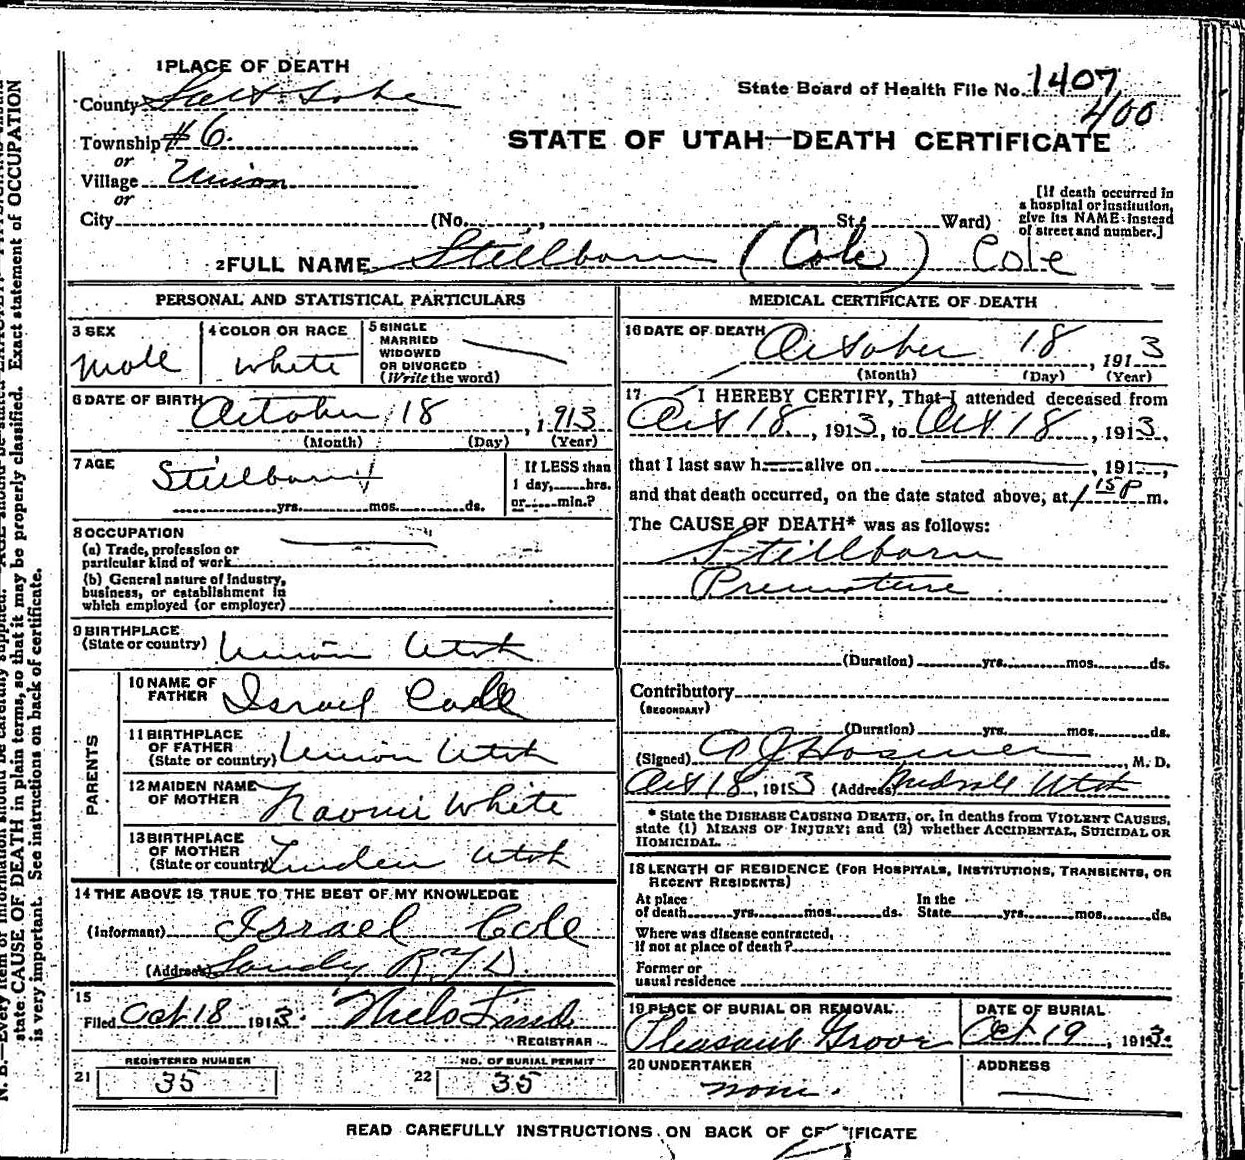 1 PLACE OF DEATH
County Salt Lake
State Board of Health File No. 1407
400
Township #6.
STATE OF UTAH—DEATH CERTIFICATE
or
Village Union
or
[If death occurred in a hospital or institution, give its NAME instead of street and number.]
City (No. , St.; Ward)
2 FULL NAME Stillborn (Cole) Cole
PERSONAL AND STATISTICAL PARTICULARS
3 SEX
Male
4 COLOR OR RACE
White
5 SINGLE
MARRIED
WIDOWED
OR DIVORCED
(Write the word)
6 DATE OF BIRTH
October 18, 1913
(Month) (Day) (Year)
7 AGE
Stillborn
yrs. mos. ds.
If LESS than
1 day, hrs.
or min.?
8 OCCUPATION
(a) Trade, profession or
particular kind of work
(b) General nature of Industry,
business, or establishment in
which employed (or employer)
9 BIRTHPLACE
(State or country) Union Utah
PARENTS
10 NAME OF
FATHER Israel Cole
11 BIRTHPLACE
OF FATHER
(State or country) Union Utah
12 MAIDEN NAME
OF MOTHER Naomi White
13 BIRTHPLACE
OF MOTHER
(State or country) Linden Utah
14 THE ABOVE IS TRUE TO THE BEST OF MY KNOWLEDGE
(Informant) Israel Cole
(Address) Sandy R.F.D.
15
Filed Oct 18 1913.
REGISTRAR
REGISTERED NUMBER
21 35
NO. OF BURIAL PERMIT
22 35
MEDICAL CERTIFICATE OF DEATH
16 DATE OF DEATH
October 18, 1913
(Month) (Day) (Year)
17 I HEREBY CERTIFY, That I attended deceased from
Oct 18, 1913, to Oct 18, 1913,
that I last saw h alive on , 191 ,
and that death occurred, on the date stated above, at 1 15 P m.
The CAUSE OF DEATH* was as follows:
Stillborn
Premature
(Duration) yrs. mos. ds.
Contributory
(SECONDARY)
(Duration) yrs. mos. ds.
(Signed) Hosmer, M. D.
Oct 18, 1913 (Address) Midvale Utah
* State the DISEASE CAUSING DEATH, or, in deaths from VIOLENT CAUSES,
state (1) MEANS OF INJURY; and (2) whether ACCIDENTAL, SUICIDAL OR
HOMICIDAL.
18 LENGTH OF RESIDENCE (FOR HOSPITALS, INSTITUTIONS, TRANSIENTS, OR
RECENT RESIDENTS)
At place
of death yrs. mos. ds.
In the
State yrs. mos. ds.
Where was disease contracted,
if not at place of death?
Former or
usual residence
19 PLACE OF BURIAL OR REMOVAL
Pleasant Grove
DATE OF BURIAL
Oct 19, 1913.
20 UNDERTAKER
none.
ADDRESS
READ CAREFULLY INSTRUCTIONS ON BACK OF CERTIFICATE
N. B.—Every item of information should be carefully supplied. Exact statement of OCCUPATION
state CAUSE OF DEATH in plain terms, so that it may be properly classified.
is very important. See instructions on back of certificate.